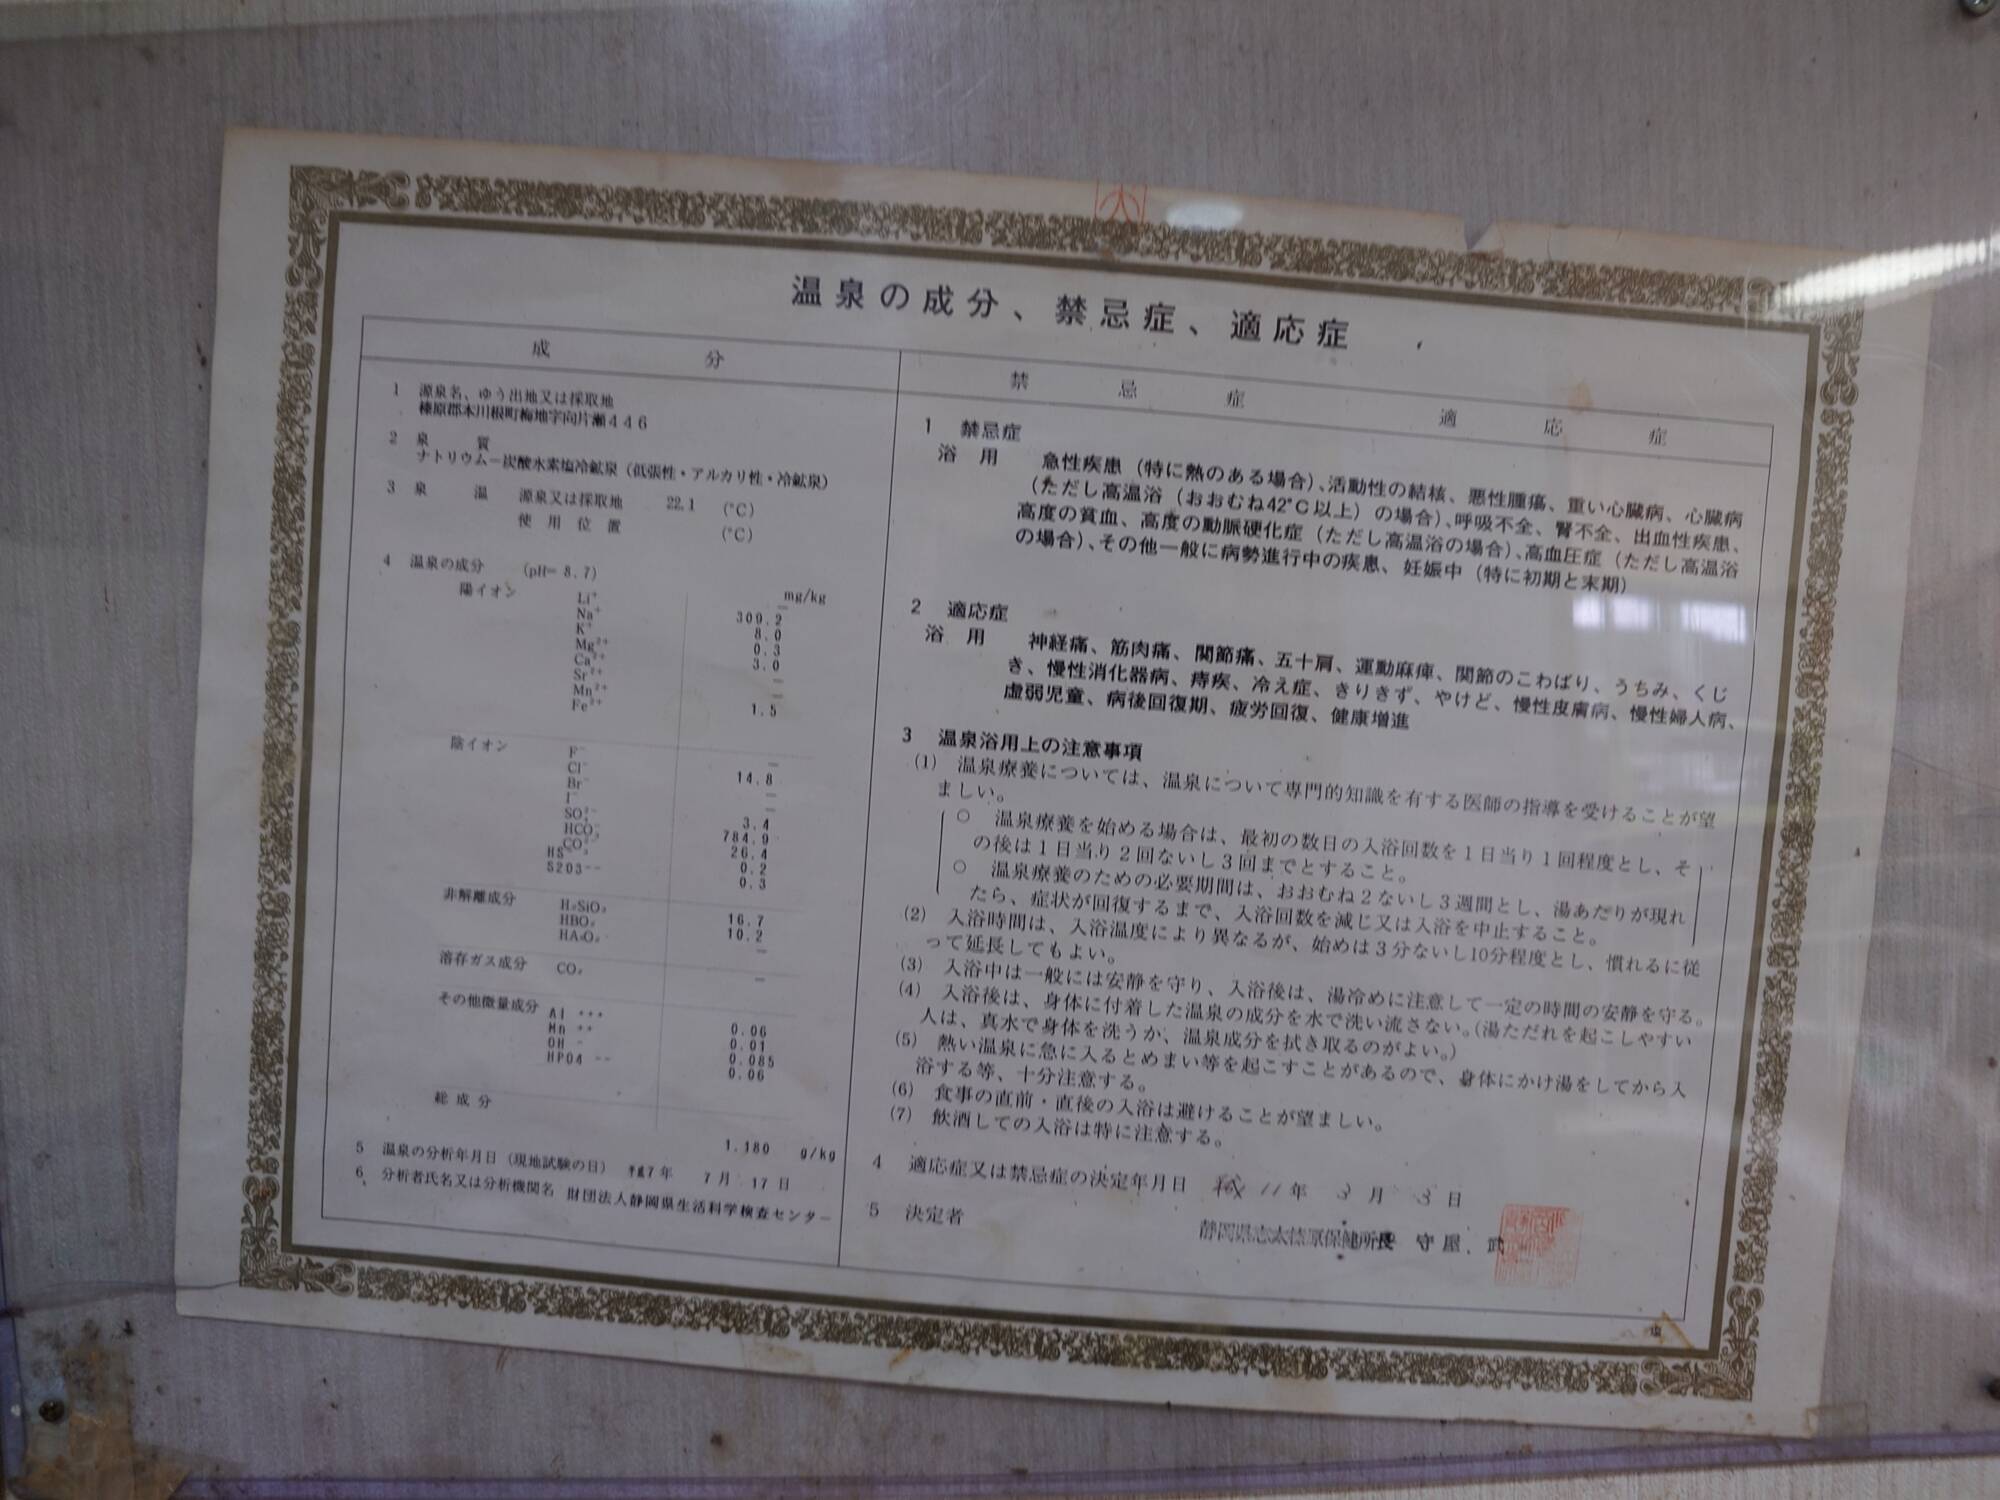 温泉の成分、禁忌症、適応症
成分
1 源泉名、ゆう出地又は採取地
榛原郡本川根町梅地字向片瀬446
2 泉質
ナトリウム―炭酸水素塩冷鉱泉(低張性・アルカリ性・冷鉱泉)
3 泉温 源泉又は採取地 22.1 (℃)
使用位置 (℃)
4 温泉の成分 (pH= 8.7)
mg/kg
陽イオン Li⁺ —
Na⁺ 309.2
K⁺ 8.0
Mg²⁺ 0.3
Ca²⁺ 3.0
Sr²⁺ —
Mn²⁺ —
Fe²⁺ 1.5
陰イオン F⁻ —
Cl⁻ 14.8
Br⁻ —
I⁻ —
SO₄²⁻ 3.4
HCO₃⁻ 784.9
CO₃²⁻ 26.4
HS⁻ 0.2
S2O3-- 0.3
非解離成分 H₂SiO₃ 16.7
HBO₂ 10.2
HAsO₂ —
溶存ガス成分 CO₂ —
その他微量成分 Al +++ 0.06
Mn ++ 0.01
OH - 0.085
HPO4 -- 0.06
総成分 1.180 g/kg
5 温泉の分析年月日(現地試験の日) 平成7年 7月 17日
6 分析者氏名又は分析機関名 財団法人静岡県生活科学検査センター
禁忌症 適応症
1 禁忌症
浴用 急性疾患(特に熱のある場合)、活動性の結核、悪性腫瘍、重い心臓病、心臓病
(ただし高温浴(おおむね42℃以上)の場合)、呼吸不全、腎不全、出血性疾患、
高度の貧血、高度の動脈硬化症(ただし高温浴の場合)、高血圧症(ただし高温浴
の場合)、その他一般に病勢進行中の疾患、妊娠中(特に初期と末期)
2 適応症
浴用 神経痛、筋肉痛、関節痛、五十肩、運動麻痺、関節のこわばり、うちみ、くじ
き、慢性消化器病、痔疾、冷え症、きりきず、やけど、慢性皮膚病、慢性婦人病、
虚弱児童、病後回復期、疲労回復、健康増進
3 温泉浴用上の注意事項
(1) 温泉療養については、温泉について専門的知識を有する医師の指導を受けることが望
ましい。
○ 温泉療養を始める場合は、最初の数日の入浴回数を1日当り1回程度とし、そ
の後は1日当り2回ないし3回までとすること。
○ 温泉療養のための必要期間は、おおむね2ないし3週間とし、湯あたりが現れ
たら、症状が回復するまで、入浴回数を減じ又は入浴を中止すること。
(2) 入浴時間は、入浴温度により異なるが、始めは3分ないし10分程度とし、慣れるに従
って延長してもよい。
(3) 入浴中は一般には安静を守り、入浴後は、湯冷めに注意して一定の時間の安静を守る。
(4) 入浴後は、身体に付着した温泉の成分を水で洗い流さない。(湯ただれを起こしやすい
人は、真水で身体を洗うか、温泉成分を拭き取るのがよい。)
(5) 熱い温泉に急に入るとめまい等を起こすことがあるので、身体にかけ湯をしてから入
浴する等、十分注意する。
(6) 食事の直前・直後の入浴は避けることが望ましい。
(7) 飲酒しての入浴は特に注意する。
4 適応症又は禁忌症の決定年月日 平成11年 3月 3日
5 決定者 静岡県志太榛原保健所長 守屋 武